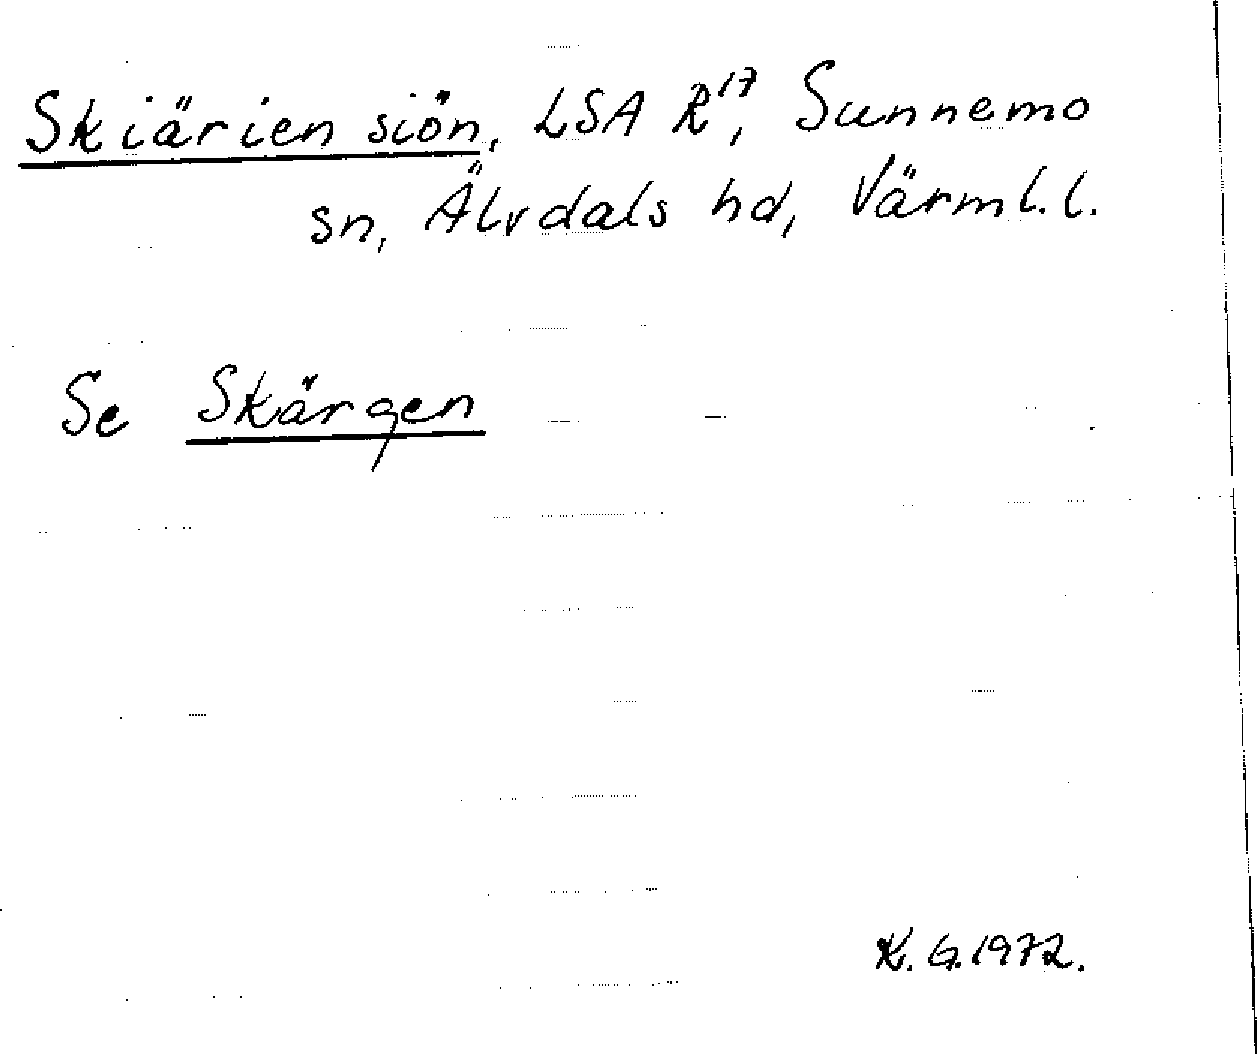 Skiärien siön, LSA R17, Sunnemo
sn, Älvdals hd, Värml. l.
Se Skärgen
K. G. 1972.